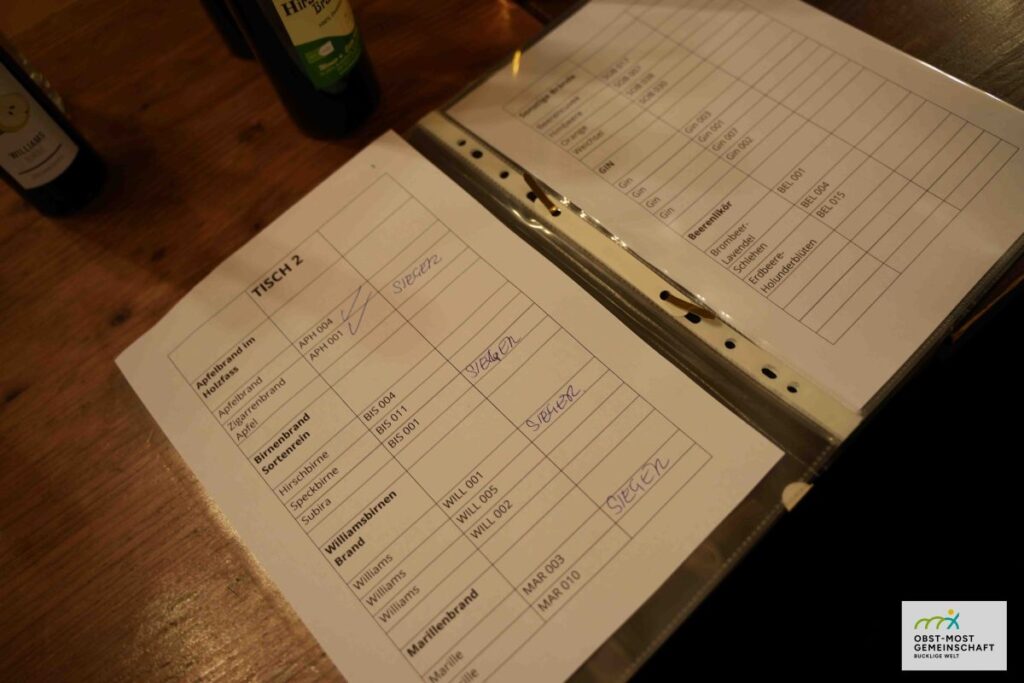 Hirs
Bra
WILLIAMS
TISCH 2
Apfelbrand im
Holzfass
Apfelbrand APH 004 SIEGER
Zigarrenbrand APH 001
Apfel
Birnenbrand
Sortenrein
Hirschbirne BIS 004
Speckbirne BIS 011 SIEGER
Subira BIS 001
Williamsbirnen
Brand
Williams WILL 001 SIEGER
Williams WILL 005
Williams WILL 002
Marillenbrand
Marille MAR 003 SIEGER
Marille MAR 010
Sonstige Brände
Himbeere
Orange
Weichtel
GIN
Gin Gin 003
Gin Gin 001
Gin Gin 007
Gin Gin 002
Beerenlikör
Brombeer- BEL 001
Lavendel
Schlehen BEL 004
Erdbeere- BEL 015
Holunderblüten
OBST-MOST
GEMEINSCHAFT
BUCKLIGE WELT